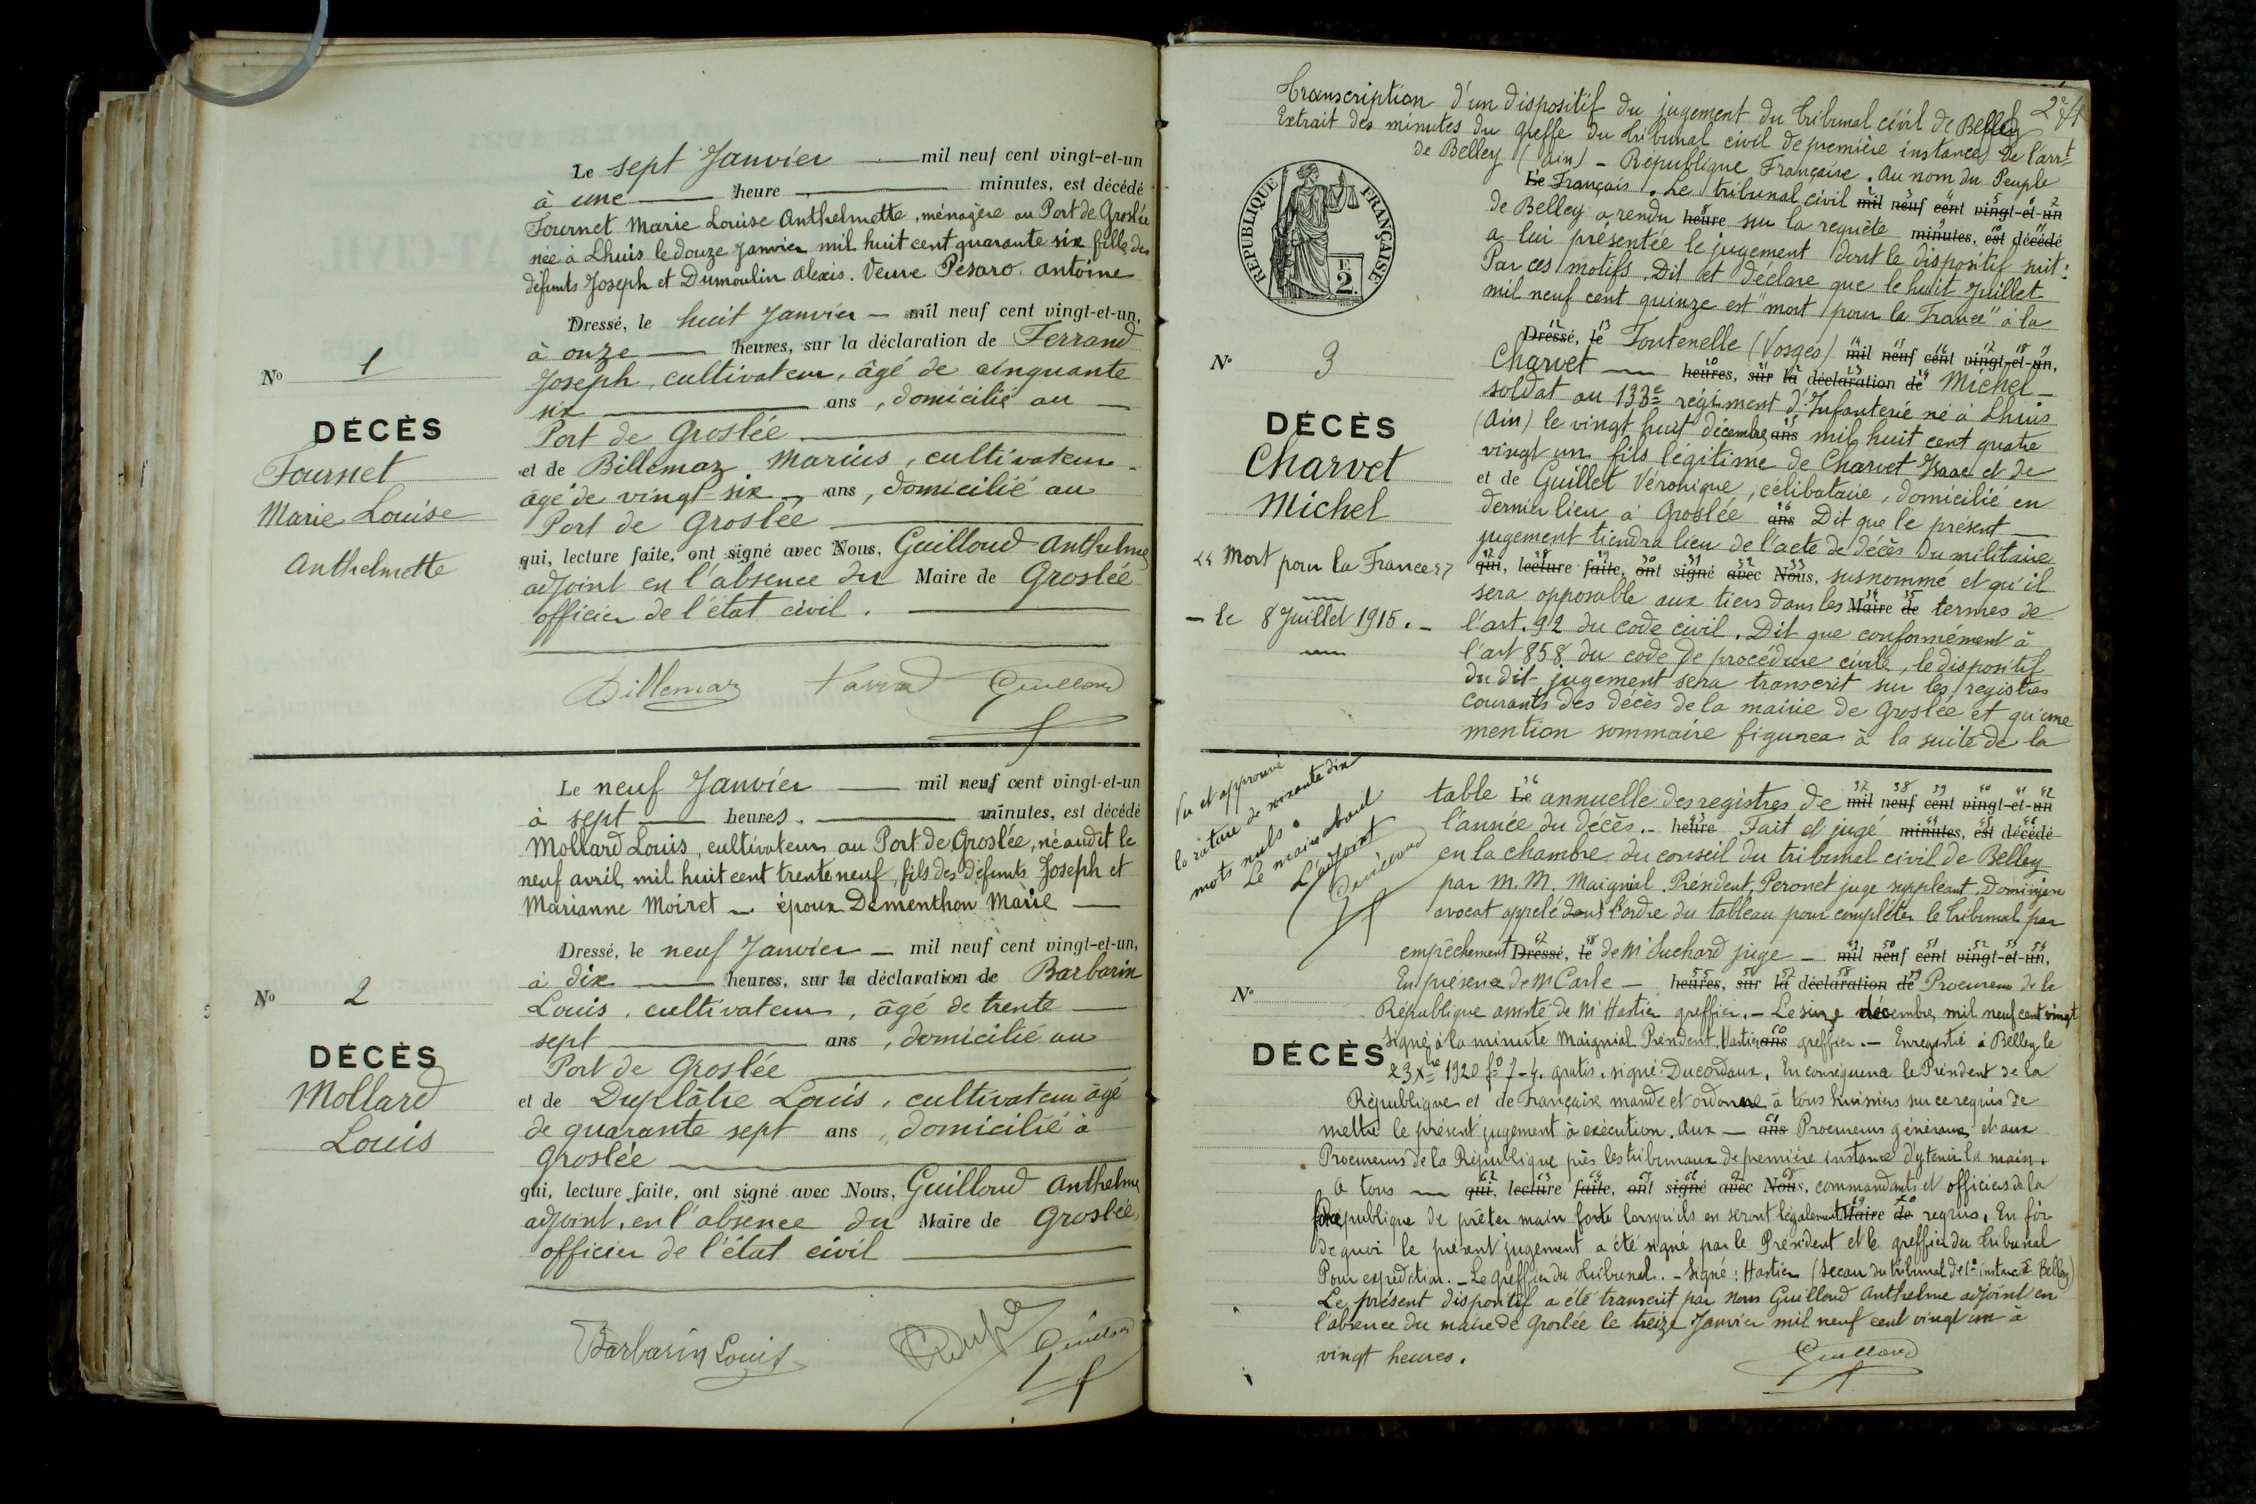 Le sept Janvier mil neuf cent vingt-et-un
à une heure minutes, est décédé
Fournet Marie Louise Anthelmette, ménagère au Port de Groslée
née à Lhuis le douze Janvier mil huit cent quarante six fille des
défunts Joseph et Dumoulin Alexis. Veuve Pesaro Antoine
Dressé, le huit Janvier — mil neuf cent vingt-et-un,
à onze heures, sur la déclaration de Ferrand
Joseph, cultivateur, âgé de cinquante
six ans, domicilié au
Port de Groslée
et de Billemaz Marius, cultivateur
âgé de vingt-six ans, domicilié au
Port de Groslée
qui, lecture faite, ont signé avec Nous, Guilloud Anthelme
adjoint en l'absence du Maire de Groslée
officier de l'état civil.
No 1
DÉCÈS
Fournet
Marie Louise
Anthelmette
Billemaz Guilloud
Le neuf Janvier mil neuf cent vingt-et-un
à sept heures. minutes, est décédé
Mollard Louis, cultivateur au Port de Groslée, né audit le
neuf avril mil huit cent trente neuf, fils des défunts Joseph et
Marianne Moiret — époux Dementhon Marie
Dressé, le neuf Janvier — mil neuf cent vingt-et-un,
à dix heures, sur la déclaration de Barbarin
Louis, cultivateur, âgé de trente
sept ans, domicilié au
Port de Groslée
et de Duplâtre Louis, cultivateur âgé
de quarante sept ans, domicilié à
Groslée
qui, lecture faite, ont signé avec Nous, Guilloud Anthelme
adjoint, en l'absence du Maire de Groslée,
officier de l'état civil
No 2
DÉCÈS
Mollard
Louis
Barbarin Louis Guilloud
Transcription d'un dispositif du jugement du tribunal civil de Belley
Extrait des minutes du greffe du tribunal civil de première instance de l'arrt
de Belley (Ain) – République Française. Au nom du Peuple
Le Français. Le tribunal civil mil neuf cent vingt-et-un
de Belley a rendu heure sur la requête minutes, est décédé
a lui présentée le jugement dont le dispositif suit:
Par ces motifs. Dit et déclare que le huit Juillet
mil neuf cent quinze est "mort pour la France" à la
Dressé, le Fontenelle (Vosges) mil neuf cent vingt-et-un,
Charvet heures, sur la déclaration de Michel
soldat au 133e régiment d'Infanterie né à Lhuis
(Ain) le vingt huit décembre ans mil huit cent quatre
vingt un fils légitime de Charvet Isaac et de
et de Guillet Véronique, célibataire, domicilié en
dernier lieu à Groslée ans Dit que le présent
jugement tiendra lieu de l'acte de décès du militaire
qui, lecture faite, ont signé avec Nous, susnommé et qu'il
sera opposable aux tiers dans les Maire de termes de
l'art. 92 du code civil. Dit que conformément à
l'art 858 du code de procédure civile, le dispositif
du dit jugement sera transcrit sur les registres
courants des décès de la mairie de Groslée et qu'une
mention sommaire figurera à la suite de la
RÉPUBLIQUE FRANÇAISE
2
No 3
DÉCÈS
Charvet
Michel
"Mort pour la France"
– le 8 Juillet 1915. –
table Le annuelle des registres de mil neuf cent vingt-et-un
l'année du décès. – heure Fait et jugé minutes, est décédé
en la chambre du conseil du tribunal civil de Belley
par M.M. Maignial Président, Peronet juge suppléant, Dominjon
avocat appelé dans l'ordre du tableau pour compléter le tribunal par
empêchement Dressé, le de Mr Luchard juge — mil neuf cent vingt-et-un,
En présence de Mr Carle — heures, sur la déclaration de Procureur de la
République assisté de Mr Hartier greffier. – Le seize décembre mil neuf cent vingt
Signé à la minute Maignial Président, Hartier ans greffier. – Enregistré à Belley le
23 Xbre 1920 fo 7-4. gratis. signé Ducordaux. En conséquence le Président de la
République et de Française mande et ordonne à tous huissiers sur ce requis de
mettre le présent jugement à exécution. Aux — ans Procureurs généraux et aux
Procureurs de la République près les tribunaux de première instance d'y tenir la main.
A tous — qui, lecture faite, ont signé avec Nous, commandants et officiers de la
République de prêter main forte lorsqu'ils en seront légalement Maire de requis. En foi
de quoi le présent jugement a été signé par le Président et le greffier du tribunal
Pour expédition. – Le greffier du tribunal. – Signé: Hartier (Sceau du tribunal de 1e instance de Belley)
Le présent dispositif a été transcrit par nous Guilloud Anthelme adjoint en
l'absence du maire de Groslée le treize Janvier mil neuf cent vingt un à
vingt heures.
Guilloud
Vu et approuvé
la rature de soixante dix
mots nuls.
Le maire absent
L'adjoint
Guilloud
No
DÉCÈS